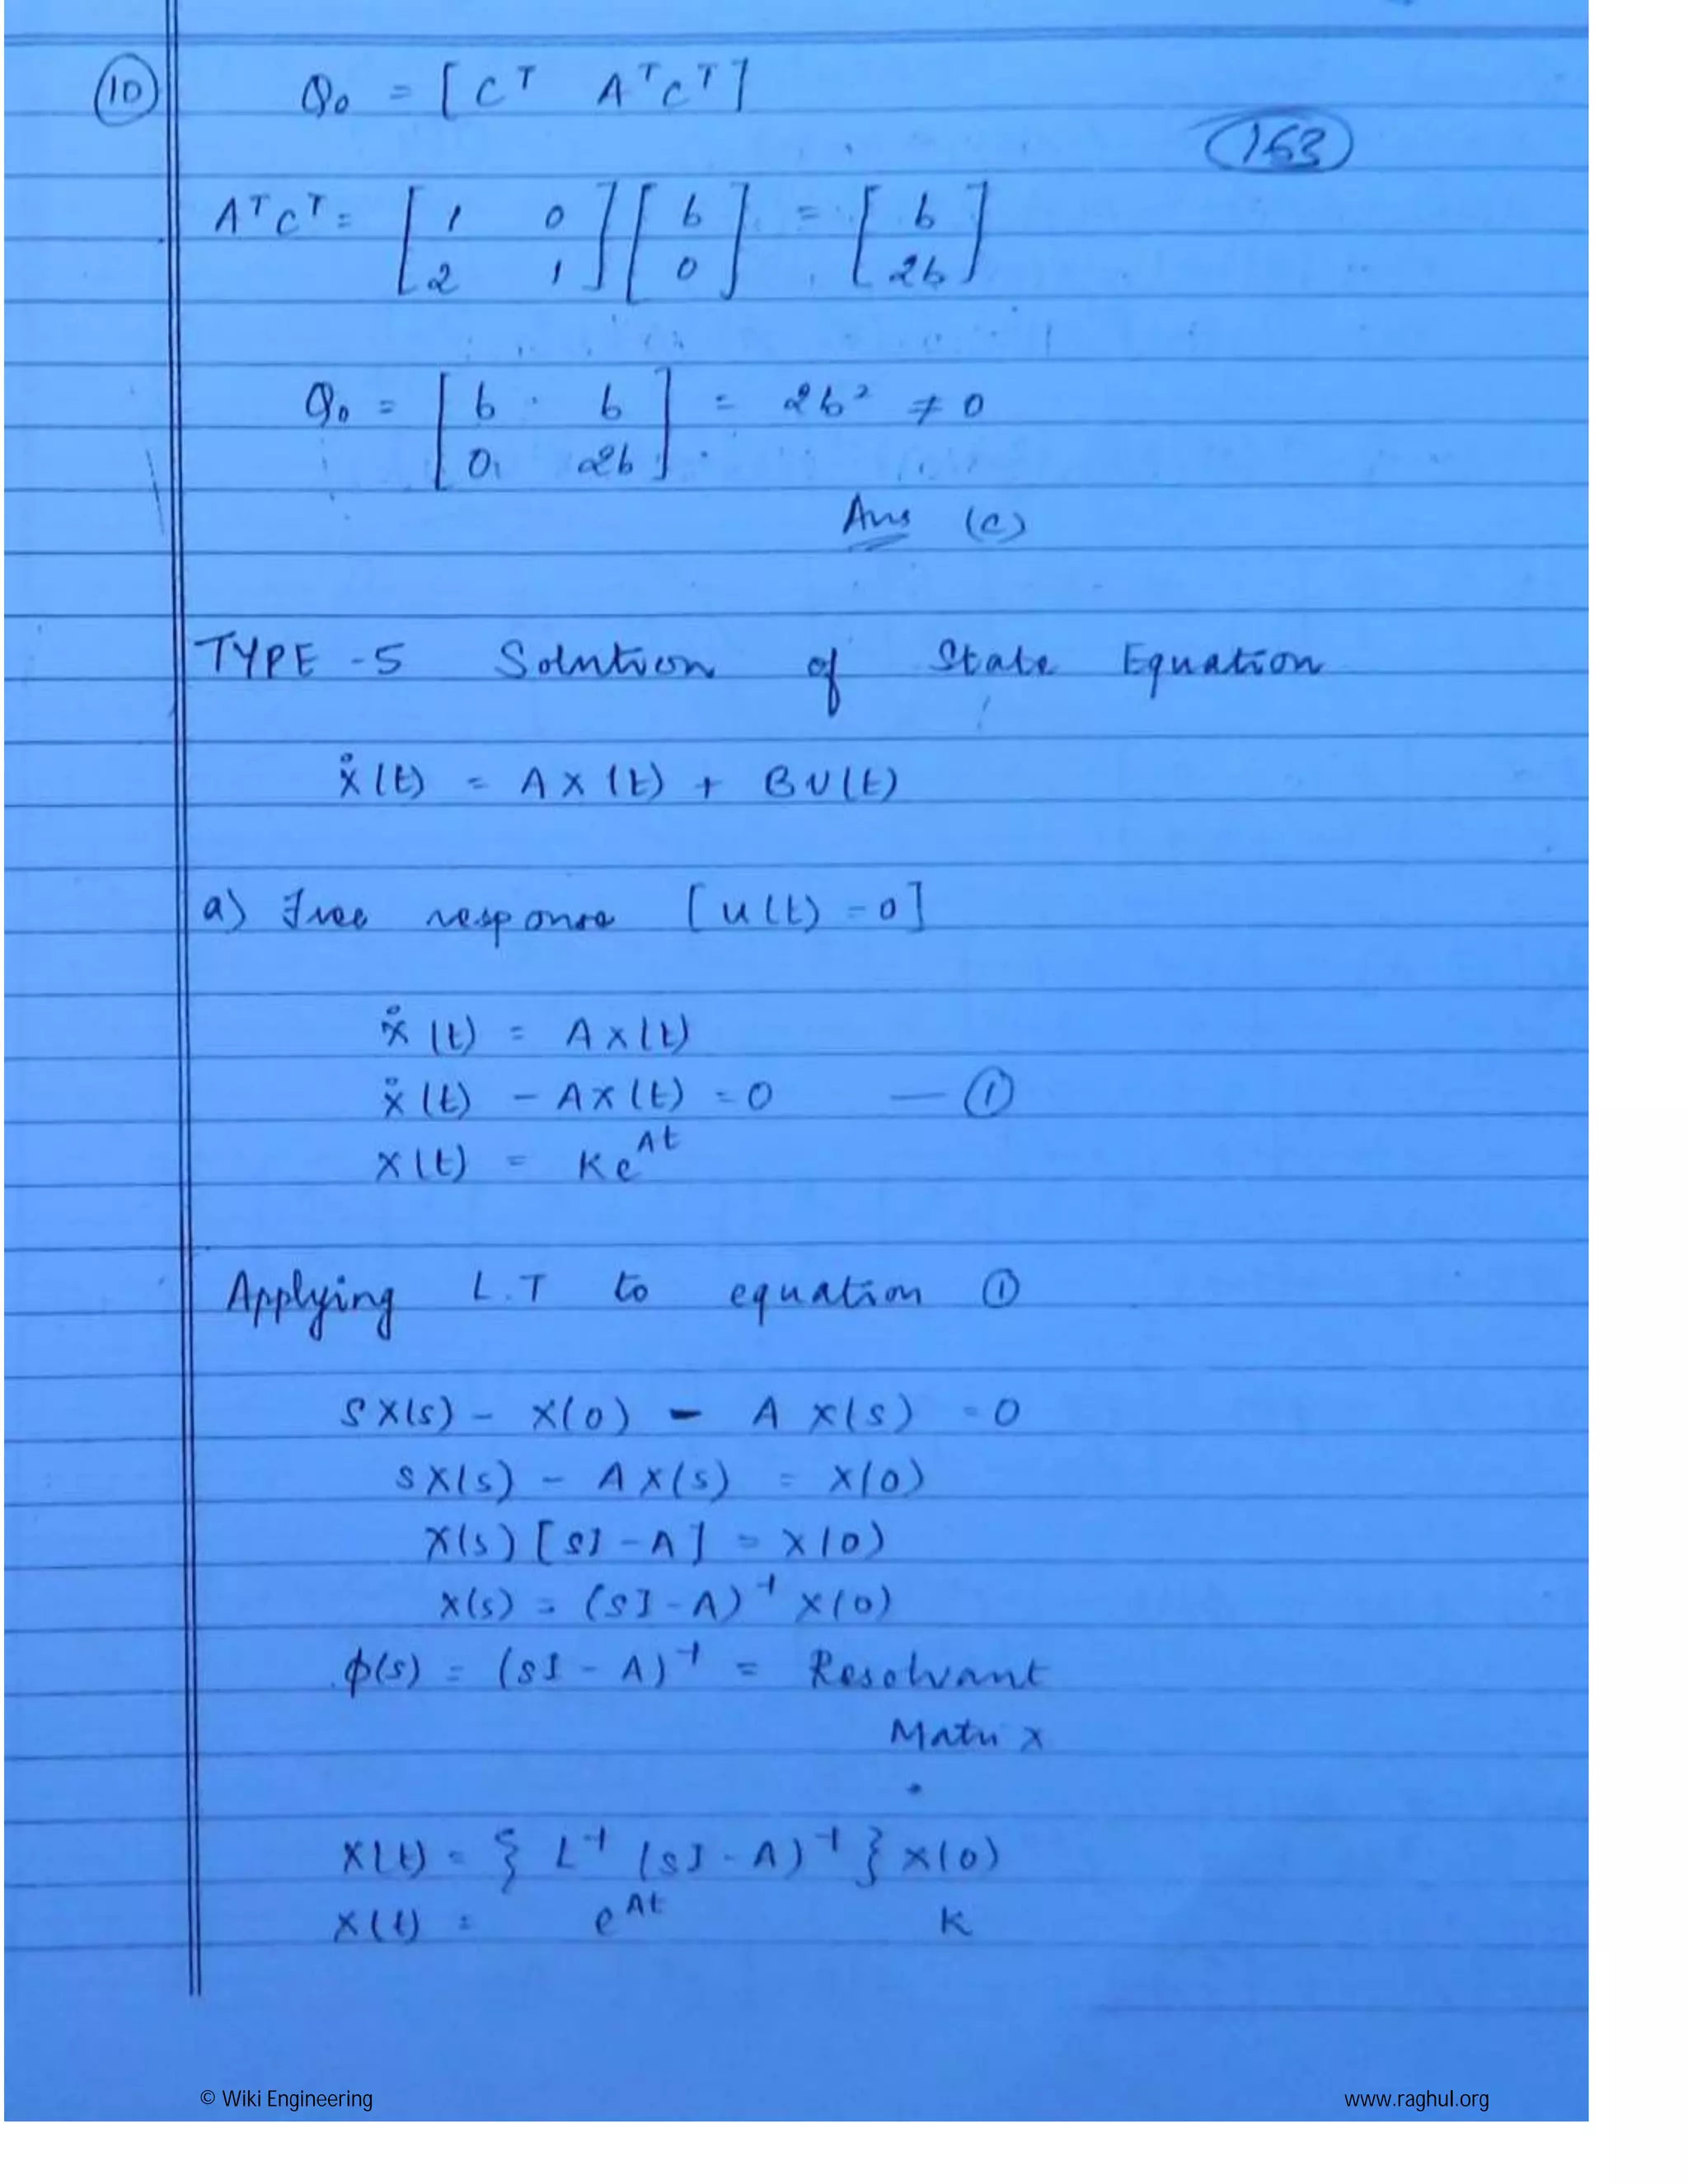 (10) Q₀ = [Cᵀ AᵀCᵀ]
(163)
AᵀCᵀ = [1 0; 2 1] [b; 0] = [b; 2b]
Q₀ = [b b; 0 2b] = 2b² ≠ 0
Ans (c)
TYPE-5 Solution of State Equation
ẋ(t) = A x(t) + B U(t)
a) Free response [u(t) = 0]
ẋ(t) = A x(t)
ẋ(t) - A x(t) = 0 — ①
x(t) = K e^At
Applying L.T to equation ①
S X(s) - X(0) - A X(s) = 0
S X(s) - A X(s) = X(0)
X(s) [SI - A] = X(0)
X(s) = (SI - A)⁻¹ X(0)
ϕ(s) = (SI - A)⁻¹ = Resolvant
Matrix
X(t) = { L⁻¹ (SI - A)⁻¹ } X(0)
X(t) = e^At K
© Wiki Engineering www.raghul.org